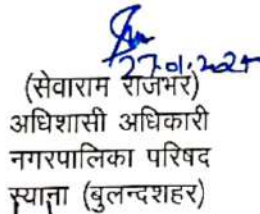 27.01.2025
(सेवाराम राजभर)
अधिशासी अधिकारी
नगरपालिका परिषद
स्याना (बुलन्दशहर)